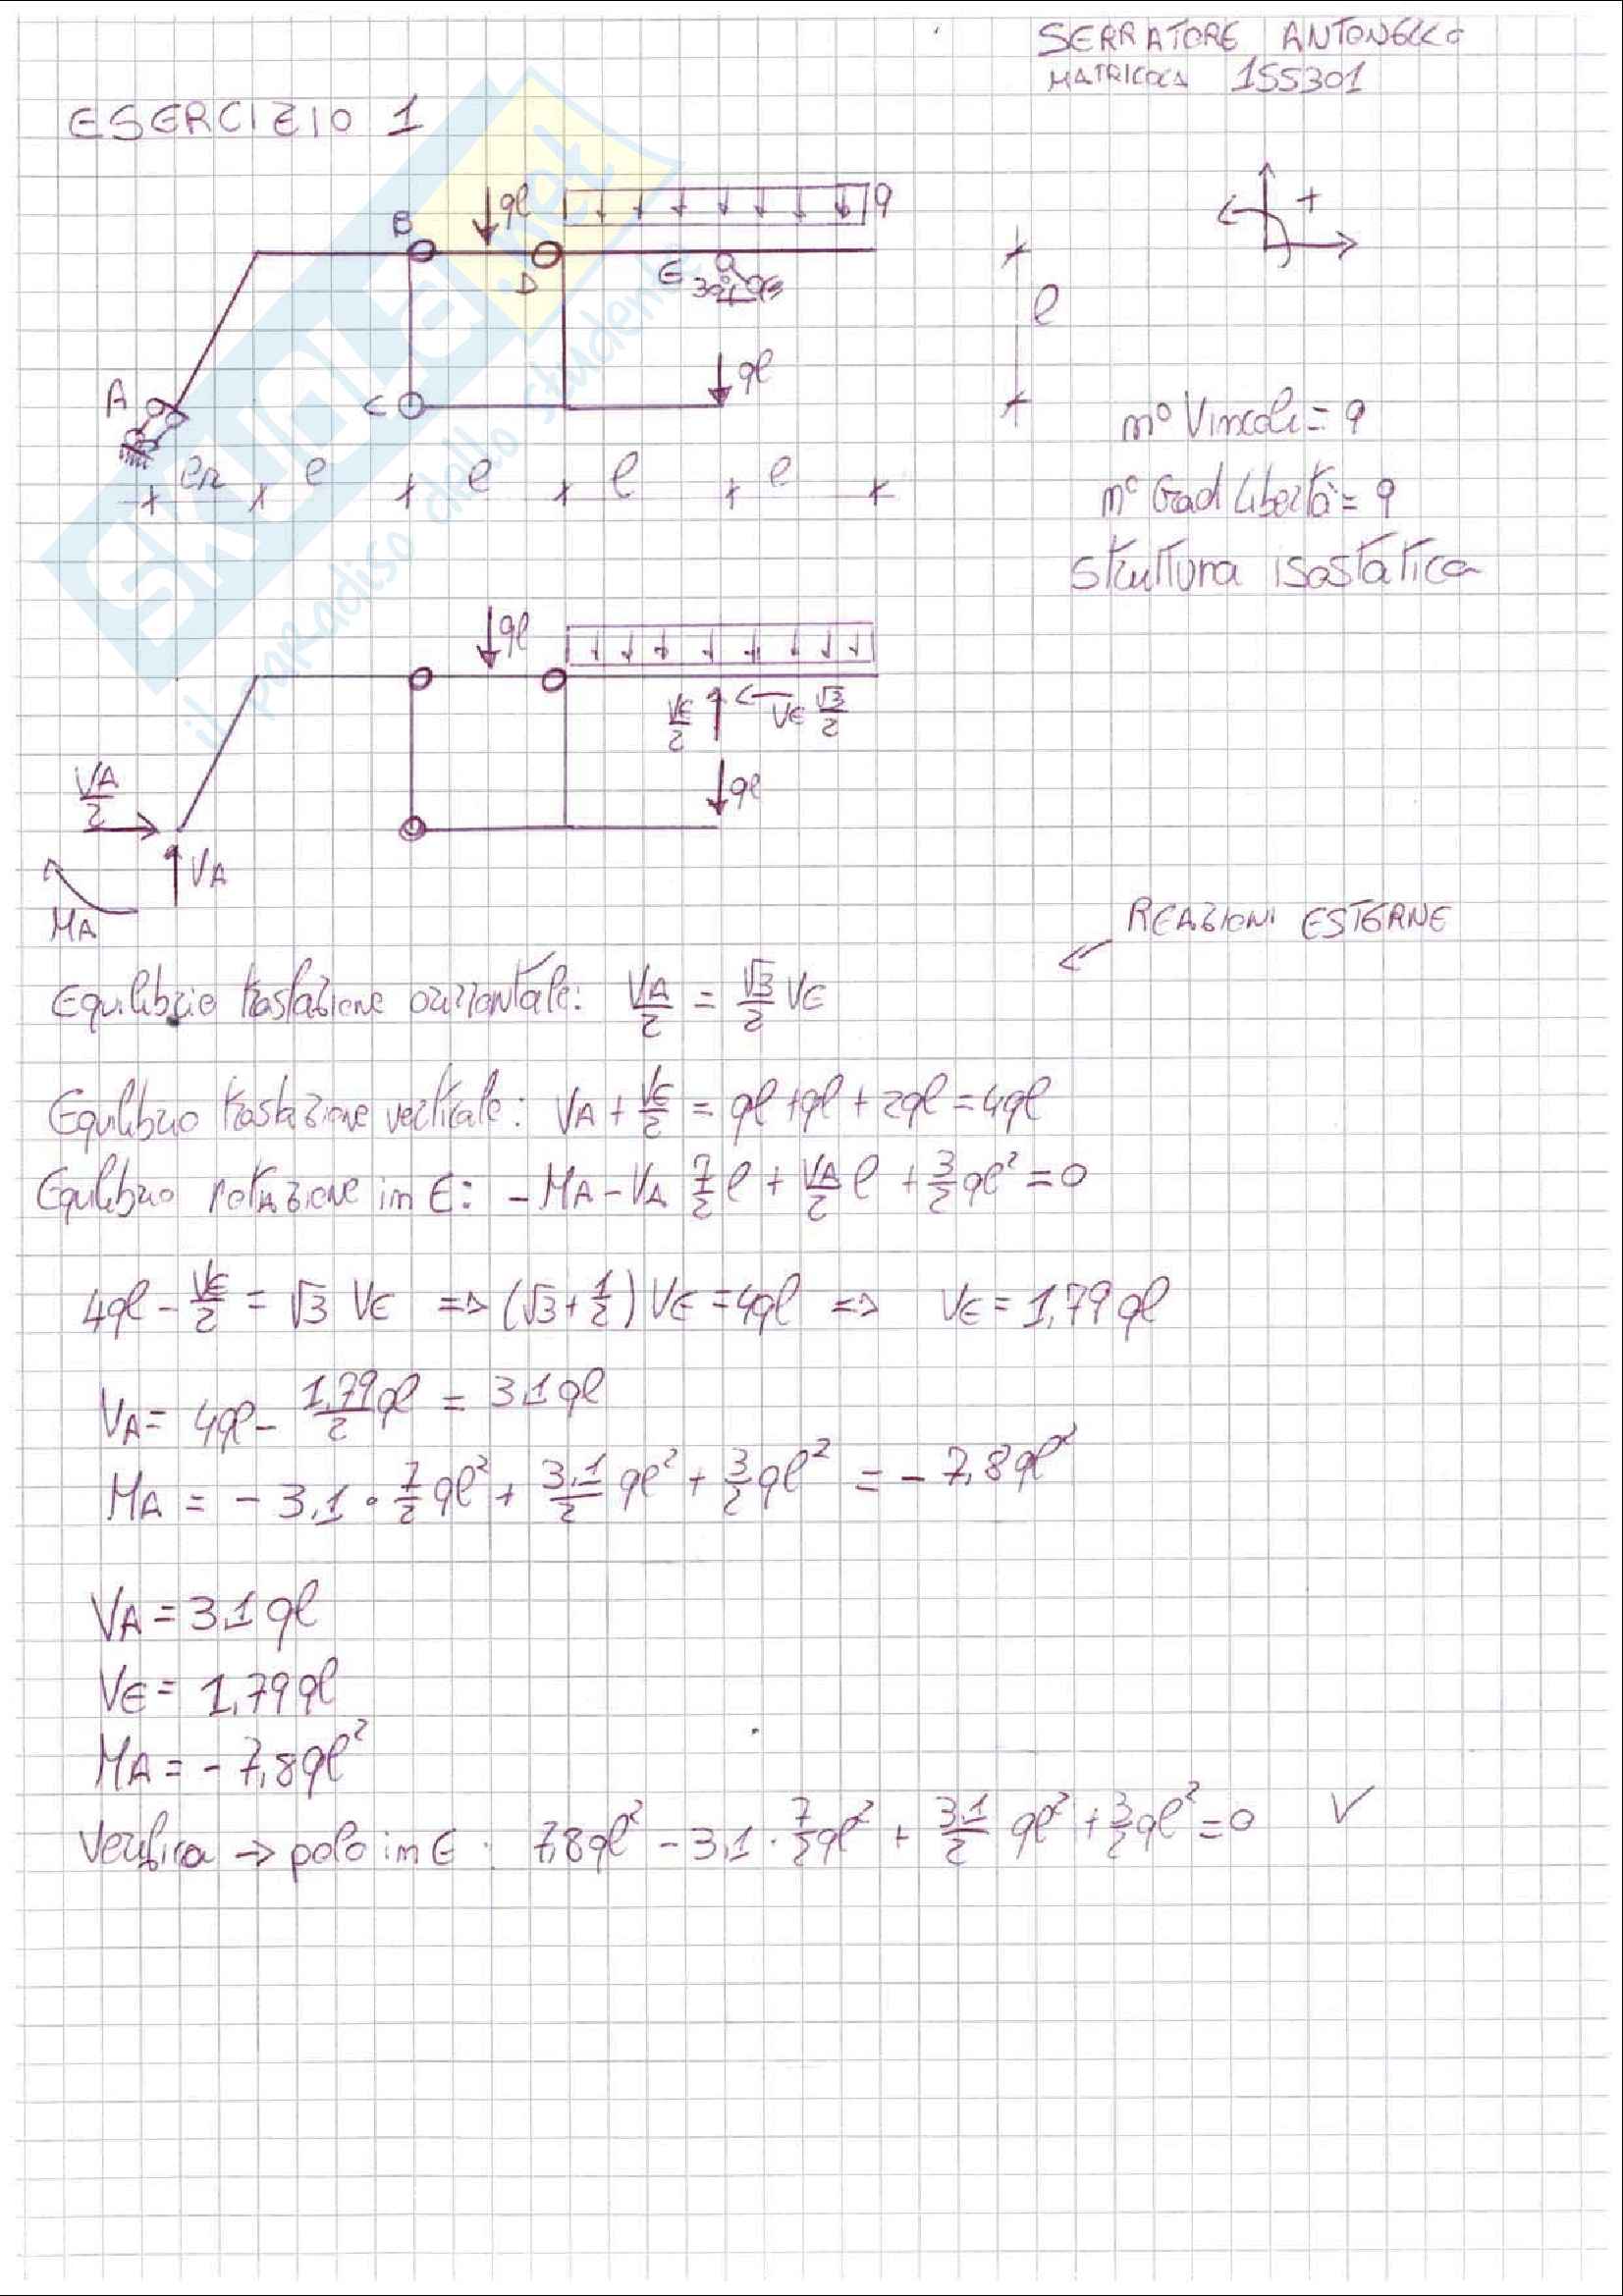 SERRATORE ANTONELLO
MATRICOLA 155301
ESERCIZIO 1
ql
q
B
D
E
30°
+
l
A
C
ql
l/2 l l l l
n° Vincoli = 9
n° Grad Libertà = 9
Struttura isostatica
ql
VE/2
VE √3/2
VA/2
ql
VA
MA
REAZIONI ESTERNE
Equilibrio traslazione orizzontale: VA/2 = √3/2 VE
Equilibrio traslazione verticale: VA + VE/2 = ql + ql + 2ql = 4ql
Equilibrio rotazione in E: - MA - VA 7/2 l + VA/2 l + 3/2 ql² = 0
4ql - VE/2 = √3 VE => (√3 + 1/2) VE = 4ql => VE = 1,79 ql
VA = 4ql - 1,79/2 ql = 3,1 ql
MA = - 3,1 · 7/2 ql² + 3,1/2 ql² + 3/2 ql² = - 7,8 ql²
VA = 3,1 ql
VE = 1,79 ql
MA = - 7,8 ql²
Verifica → polo in E : 7,8 ql² - 3,1 · 7/2 ql² + 3,1/2 ql² + 3/2 ql² = 0 V
SKUOLA.net
il paradiso dello studente